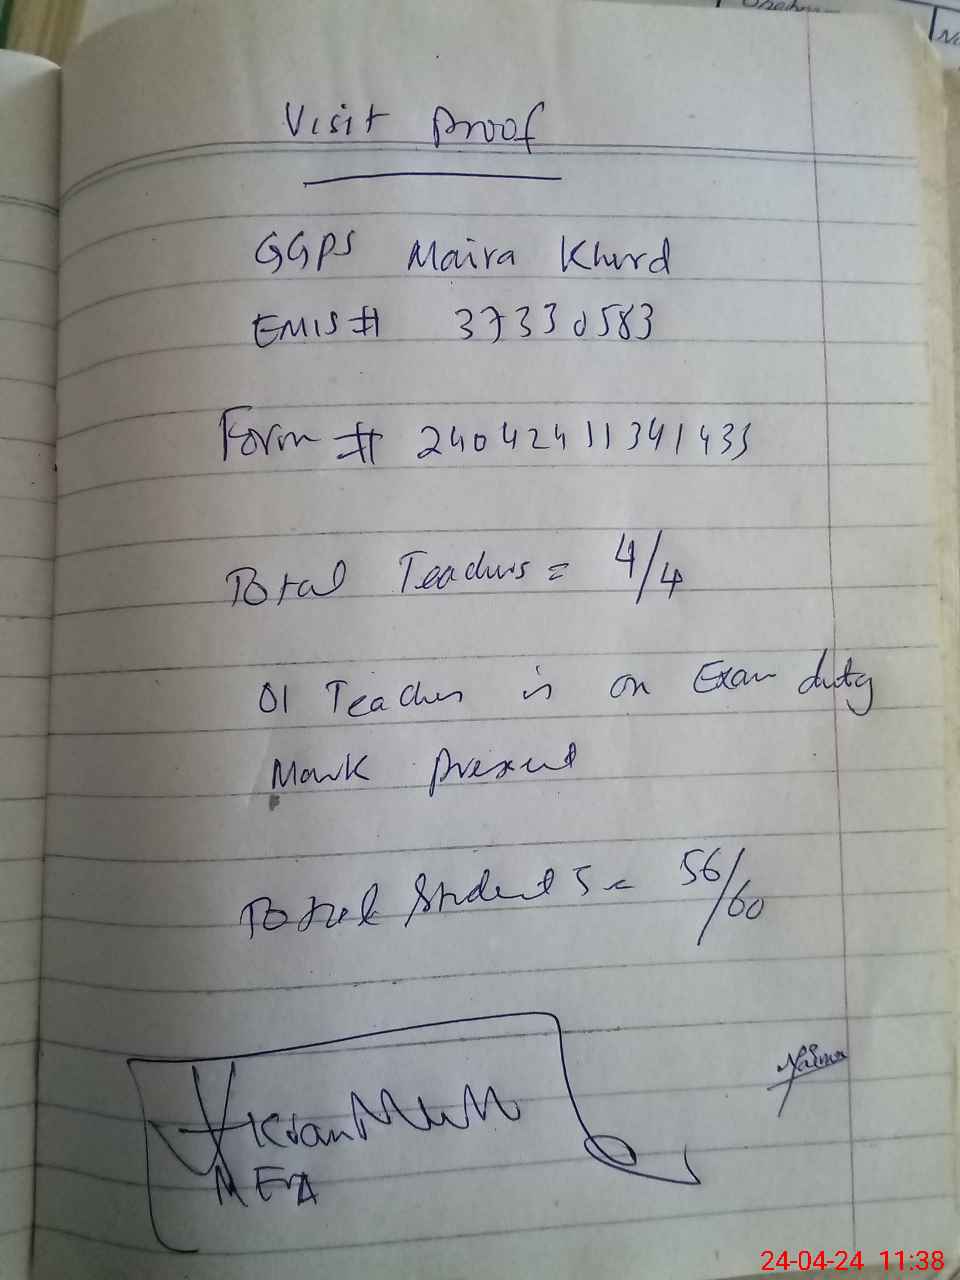 Visit Proof
GGPS Maira Khurd
EMIS # 37330583
Form # 24042411341435
Total Teachers = 4/4
01 Teacher is on Exam duty
Mark present
Total Students = 56/60
Naima
MEA
24-04-24 11:38